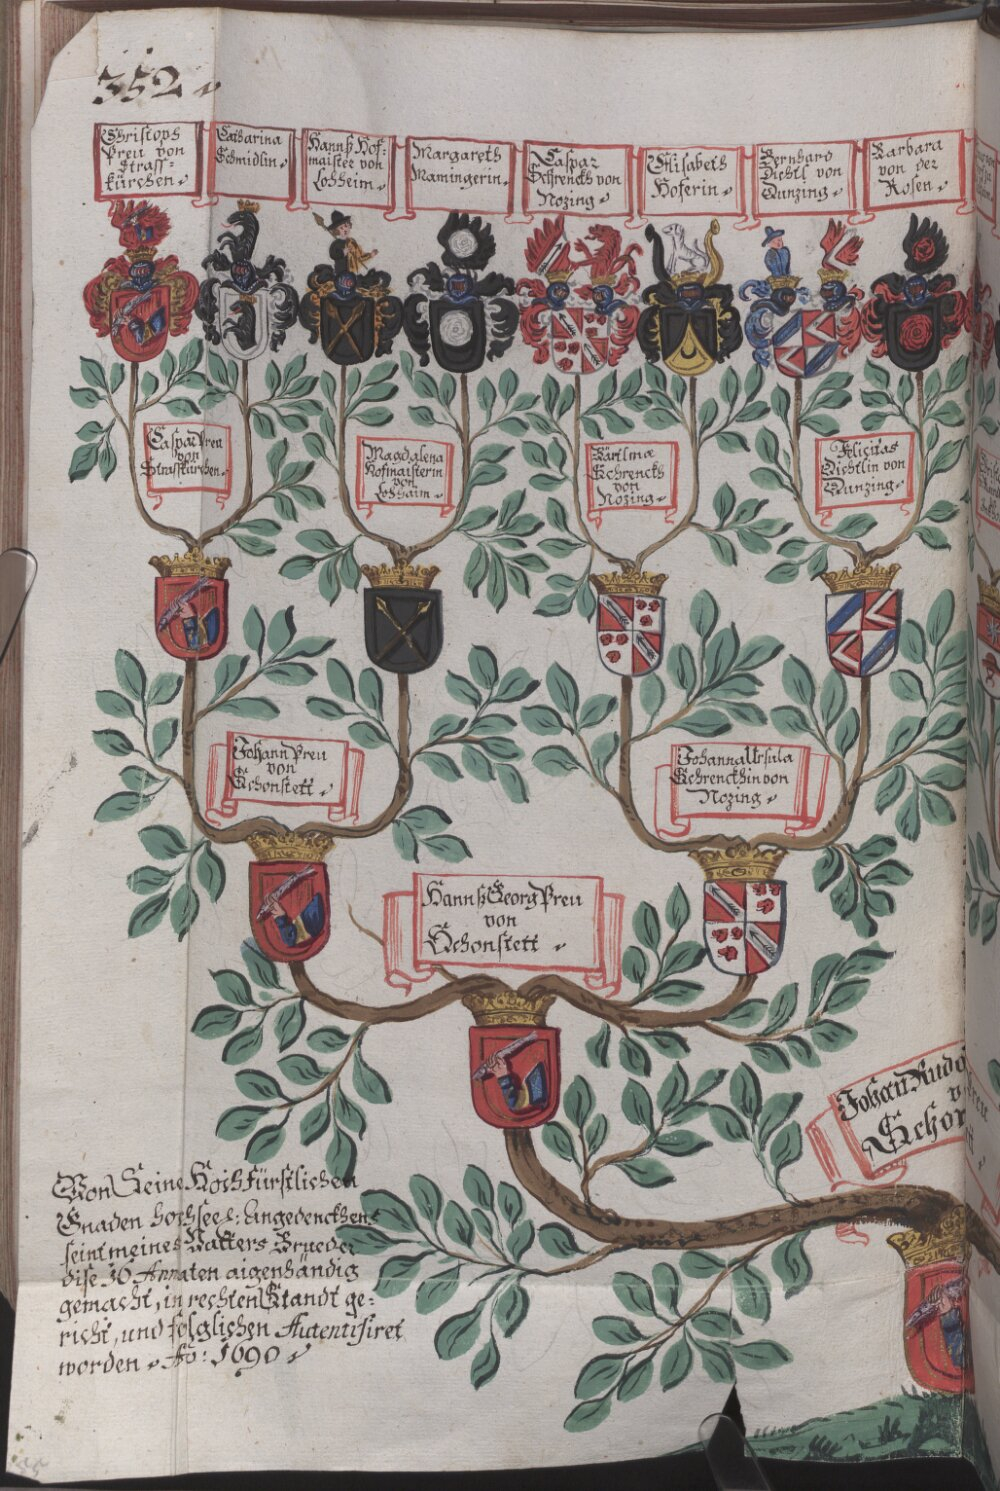 352
Christoph
Preu von
Strass=
kürchen
Catharina
Schmidlin
Hannß Hof=
maister von
Lohheim
Margareth
Mamingerin
Caspar
Schrenckh von
Nozing
Elisabeth
Hoferin
Bernhard
Dichtl von
Tunzing
Barbara
von der
Rosen
Caspar Preu
von
Strasskürchen
Magdalena
Hofmaisterin
von
Lohhaim
Bärtlmæ
Schrenckh
von
Nozing
Felicitas
Dichtlin von
Tunzing
Johann Preu
von
Schonstett
Johanna Ursula
Schrenckhin von
Nozing
Hannß Georg Preu
von
Schonstett
Johan Rudo
v
Schon
Von Seine Hochfürstlichen
Gnaden hochseel: Angedenckhens
seint meines Vatters Brueder
dise 16 Annaten aigenhändig
gemacht, in rechten Standt ge=
richt, und folglichen Autentisiret
worden Ao: 1690